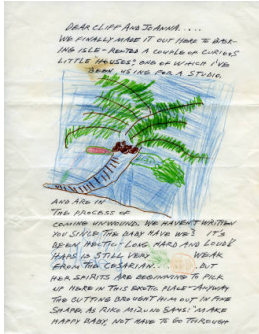 DEAR CLIFF AND JOANNA.....
WE FINALLY MADE IT OUT HERE TO
ING ISLE - RENTED A COUPLE OF CURIOUS
LITTLE "HOUSES", ONE OF WHICH I'VE
BEEN USING FOR A STUDIO
AND ARE IN
THE PROCESS OF
COMING UNWOUND. WE HAVEN'T WRITTEN
YOU SINCE THE BABY HAVE WE? IT'S
BEEN HECTIC - LONG HARD AND LOUD!
IS STILL VERY WEAK
FROM THE CESARIAN. BUT
HER SPIRITS ARE BEGINNING TO PICK
UP HERE IN THIS EXOTIC PLACE - ANYWAY
THE CUTTING BROUGHT HIM OUT IN FINE
SHAPE. AS RIKO MIZUNO SAYS: "MAKE
HAPPY BABY, NOT HAVE TO GO THROUGH